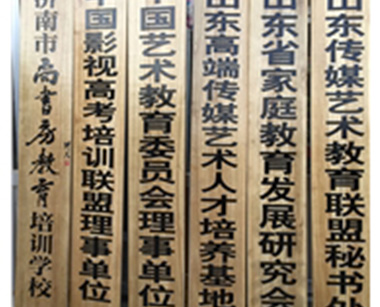 济南市尚书房教育培训学校
中国影视高考培训联盟理事单位
中国艺术教育委员会理事单位
山东高端传媒艺术人才培养基地
山东省家庭教育发展研究会
山东传媒艺术教育联盟秘书处